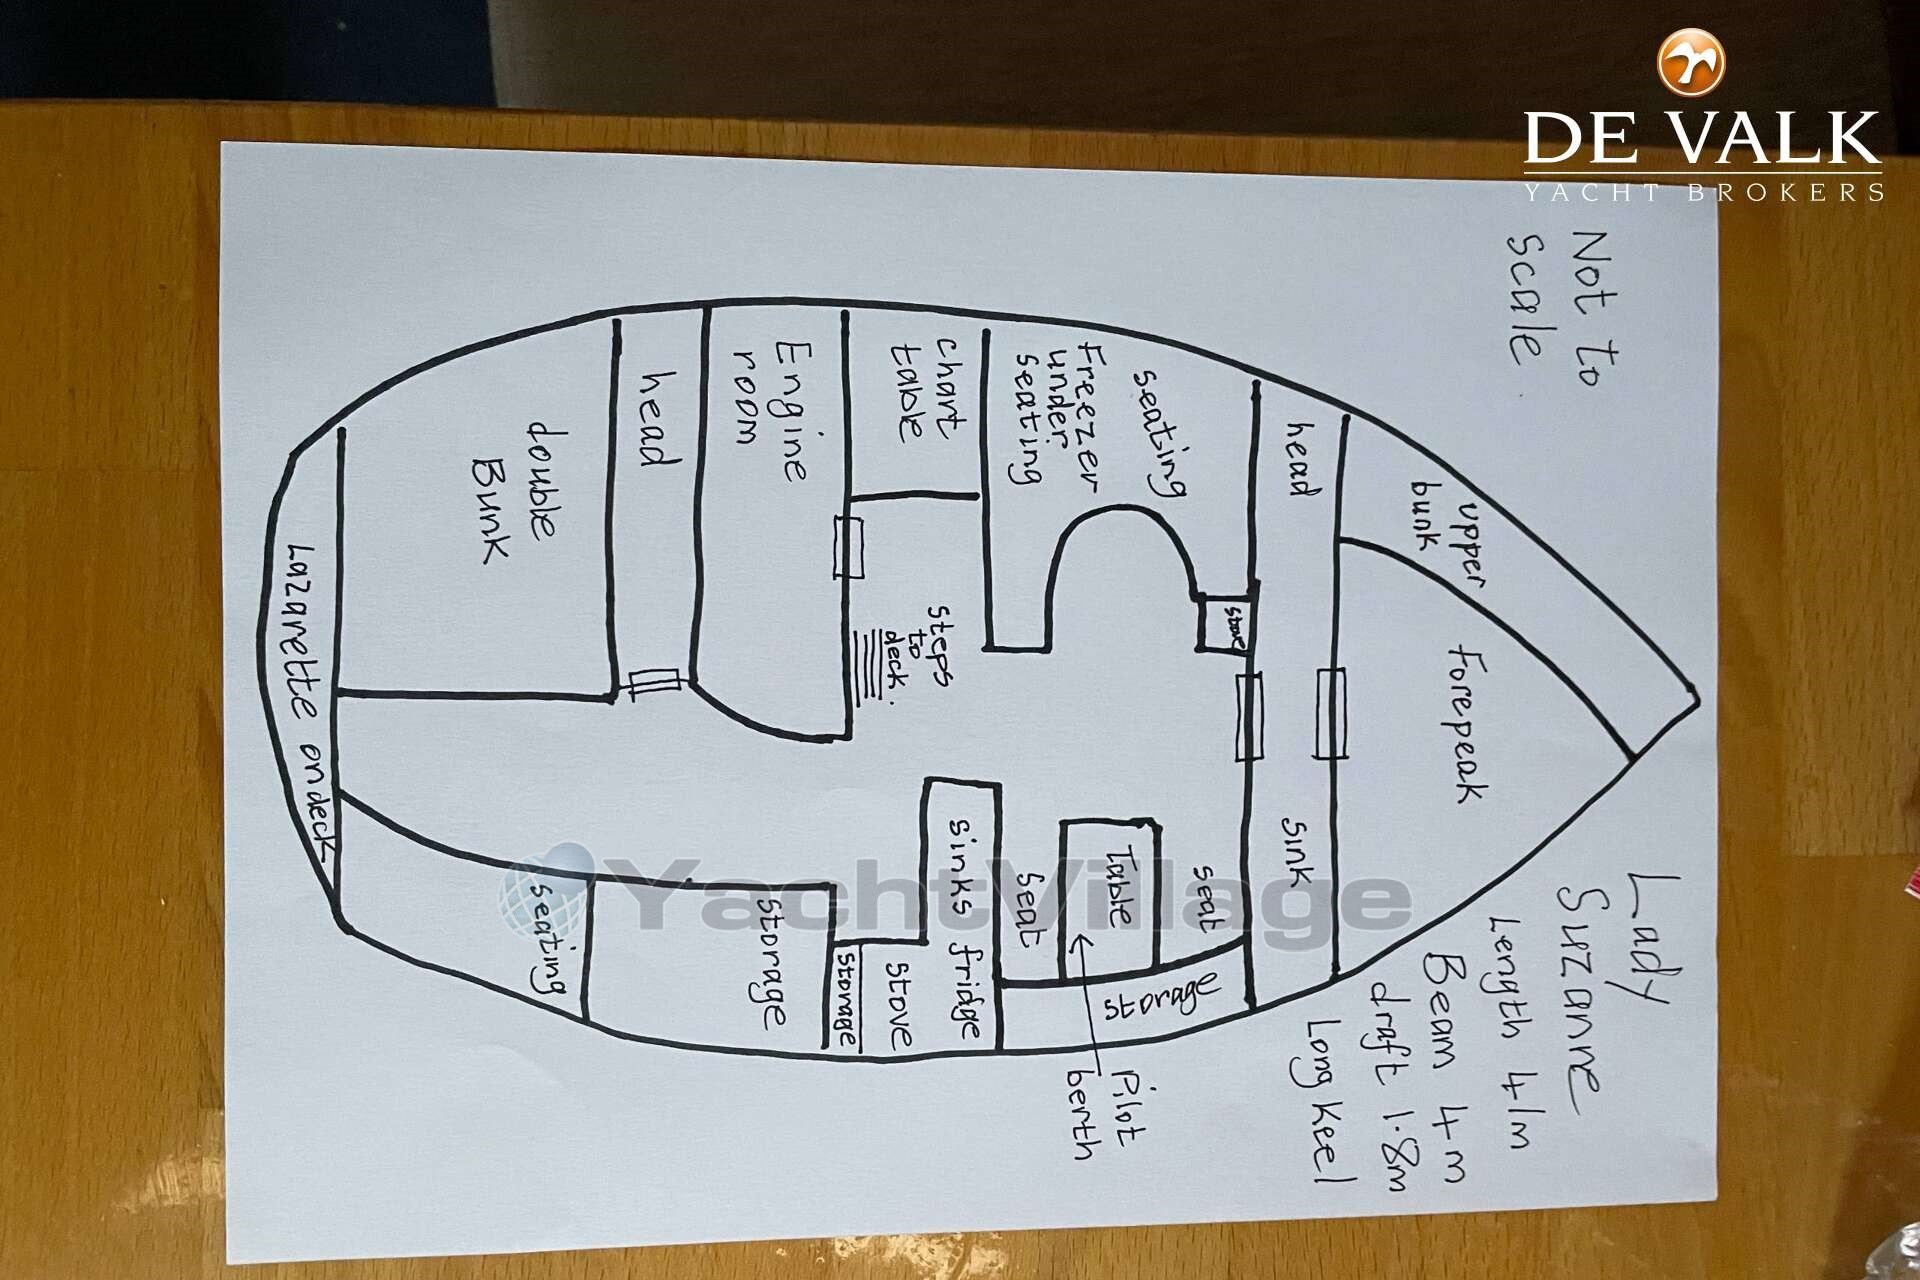 DE VALK
YACHT BROKERS
Not to
Scale
Lady
Suzanne
Length 41m
Beam 4m
draft 1.8m
Long Keel
upper
bunk
Forepeak
head
Sink
seating
Freezer
under
seating
stove
seat
Table
seat
storage
Pilot
berth
chart
table
steps
to
deck.
Sinks fridge
stove
storage
Engine
room
storage
head
double
Bunk
seating
Lazarette on deck
YachtVillage